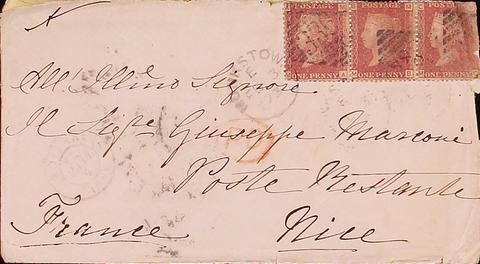 POSTAGE POSTAGE POSTAGE
ONE PENNY ONE PENNY ONE PENNY
All' Illmo Signore
Il Sigre Giuseppe Marconi
Poste Restante
France Nice